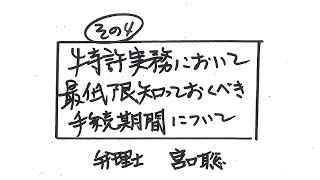 その4
特許実務において
最低限知っておくべき
手続期間について
弁理士 宮口聡